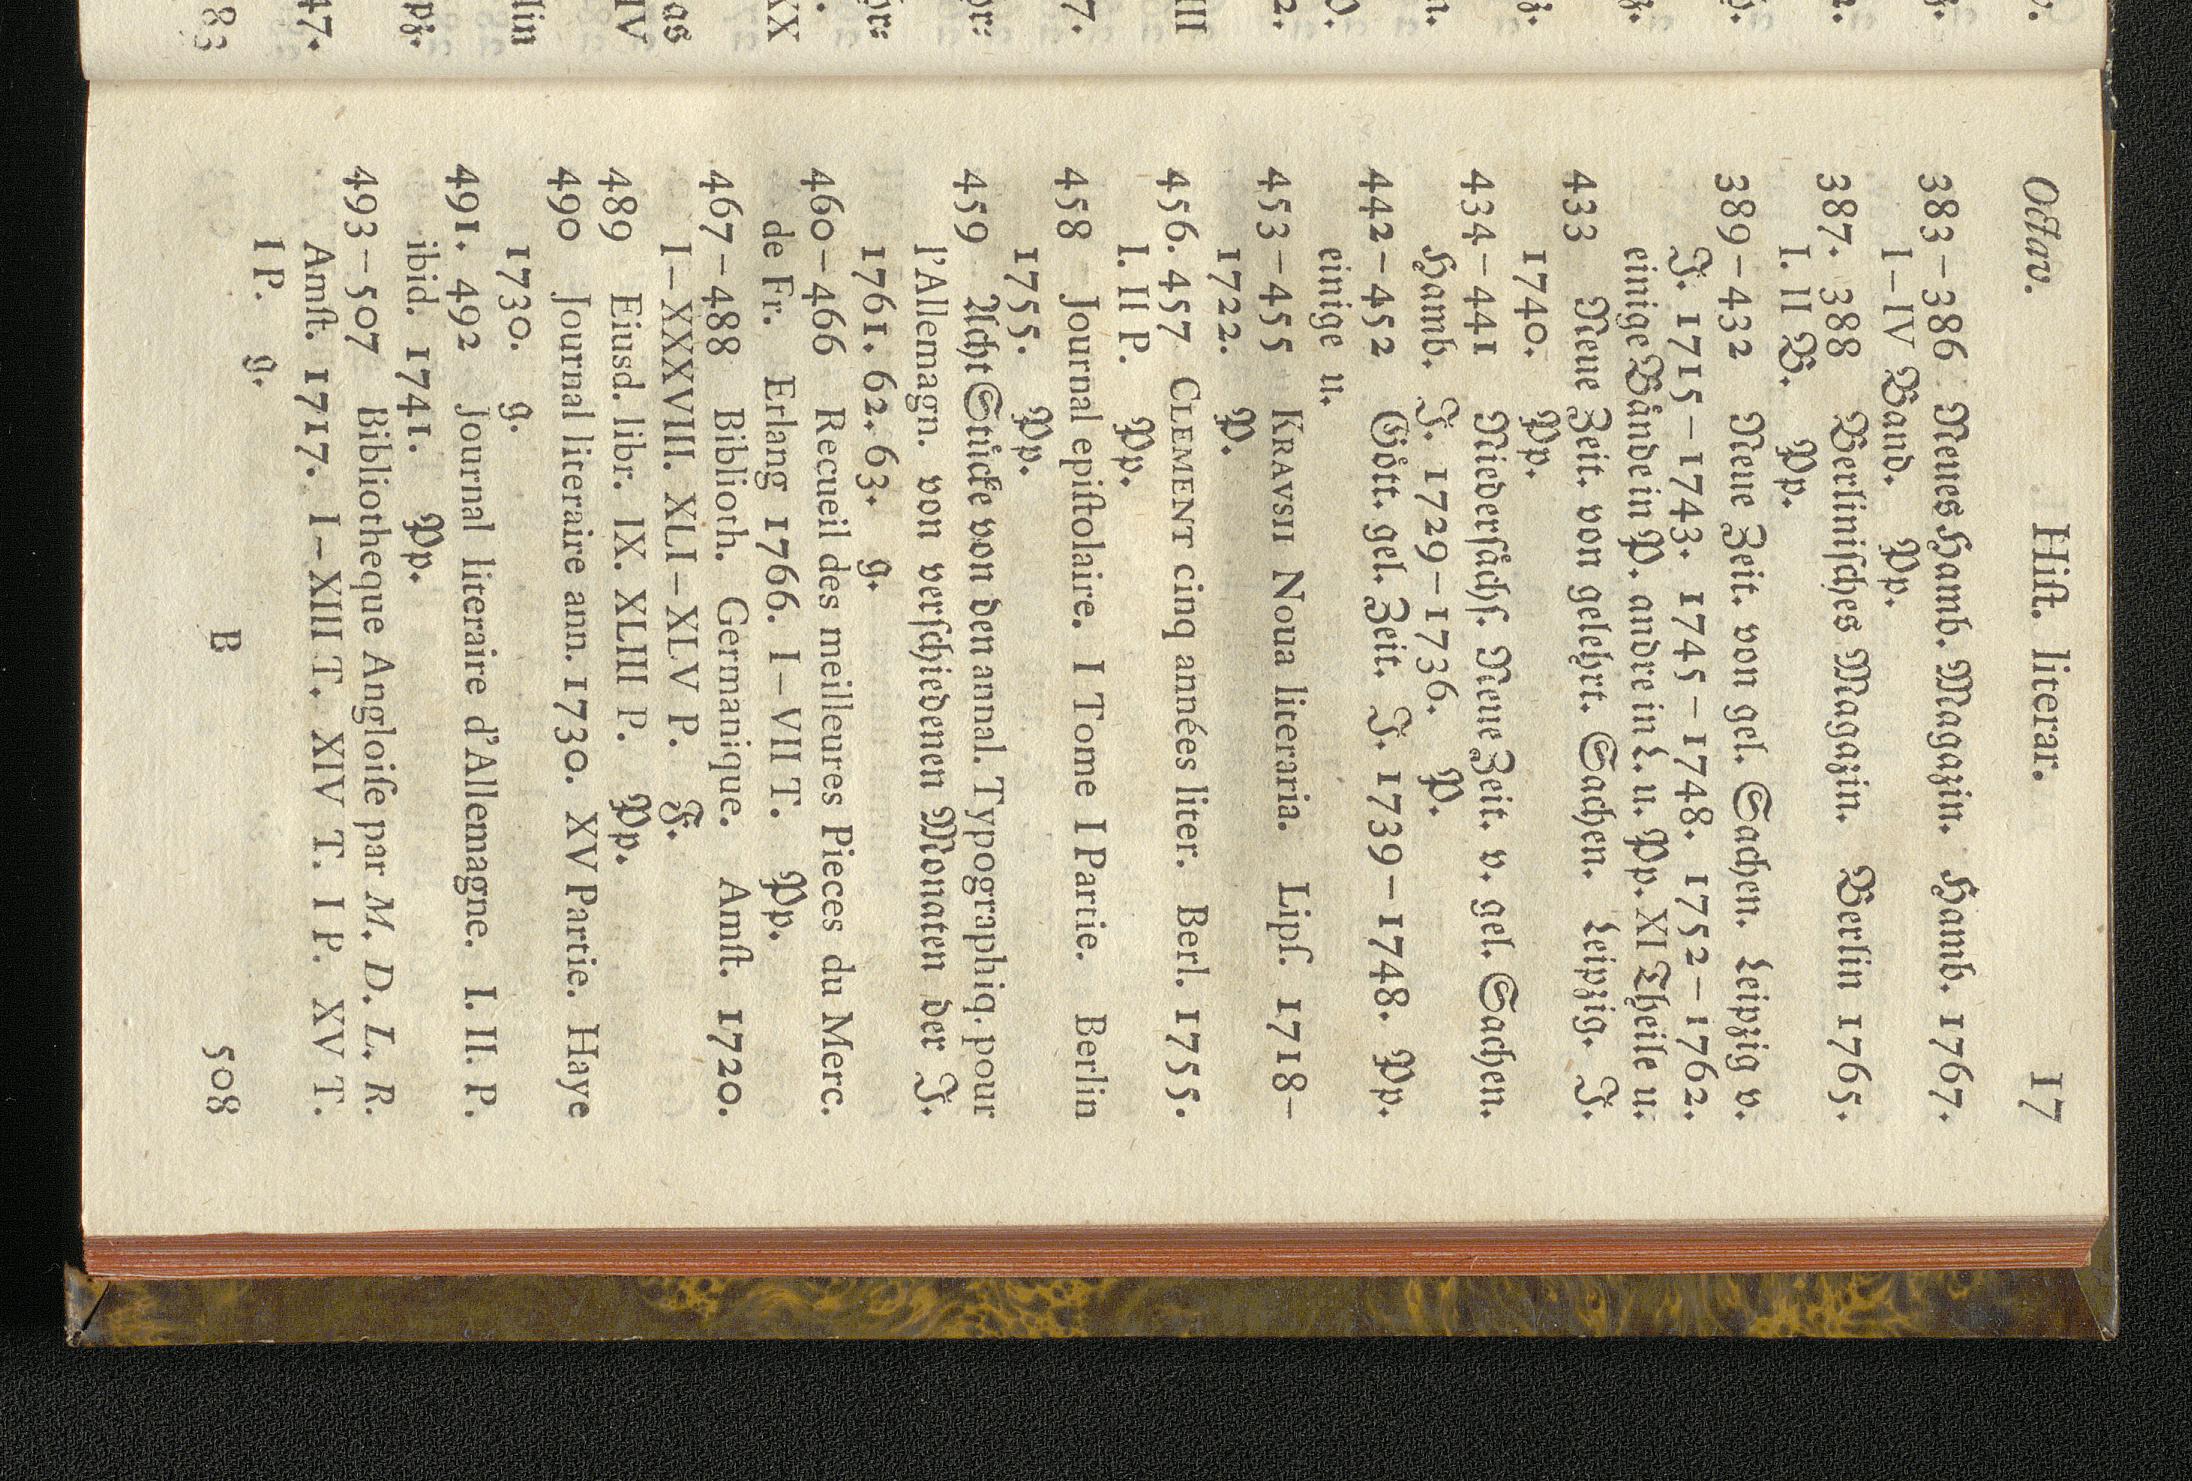 Octav. Hiſt. literar. 17
383–386 Neues Hamb. Magazin. Hamb. 1767.
I–IV Band. Pp.
387. 388 Berliniſches Magazin. Berlin 1765.
I. II B. Pp.
389–432 Neue Zeit. von gel. Sachen. Leipzig v.
J. 1715–1743. 1745–1748. 1752–1762.
einige Bände in P. andre in L. u. Pp. XI Theile u:
433 Neue Zeit. von gelehrt. Sachen. Leipzig. J.
1740. Pp.
434–441 Niederſächſ. Neue Zeit. v. gel. Sachen.
Hamb. J. 1729–1736. P.
442–452 Gött. gel. Zeit. J. 1739–1748. Pp.
einige u.
453–455 KRAVSII Noua literaria. Lipſ. 1718–
1722. P.
456. 457 CLEMENT cinq années liter. Berl. 1755.
I. II P. Pp.
458 Journal epiſtolaire. I Tome I Partie. Berlin
1755. Pp.
459 Acht Stücke von den annal. Typographiq. pour
l'Allemagn. von verſchiedenen Monaten der J.
1761. 62. 63. g.
460–466 Recueil des meilleures Pieces du Merc.
de Fr. Erlang 1766. I–VII T. Pp.
467–488 Biblioth. Germanique. Amſt. 1720.
I–XXXVIII. XLI–XLV P. F.
489 Eiusd. libr. IX. XLIII P. Pp.
490 Journal literaire ann. 1730. XV Partie. Haye
1730. g.
491. 492 Journal literaire d'Allemagne. I. II. P.
ibid. 1741. Pp.
493–507 Bibliotheque Angloiſe par M. D. L. R.
Amſt. 1717. I–XIII T. XIV T. I P. XV T.
I P. g.
B 508